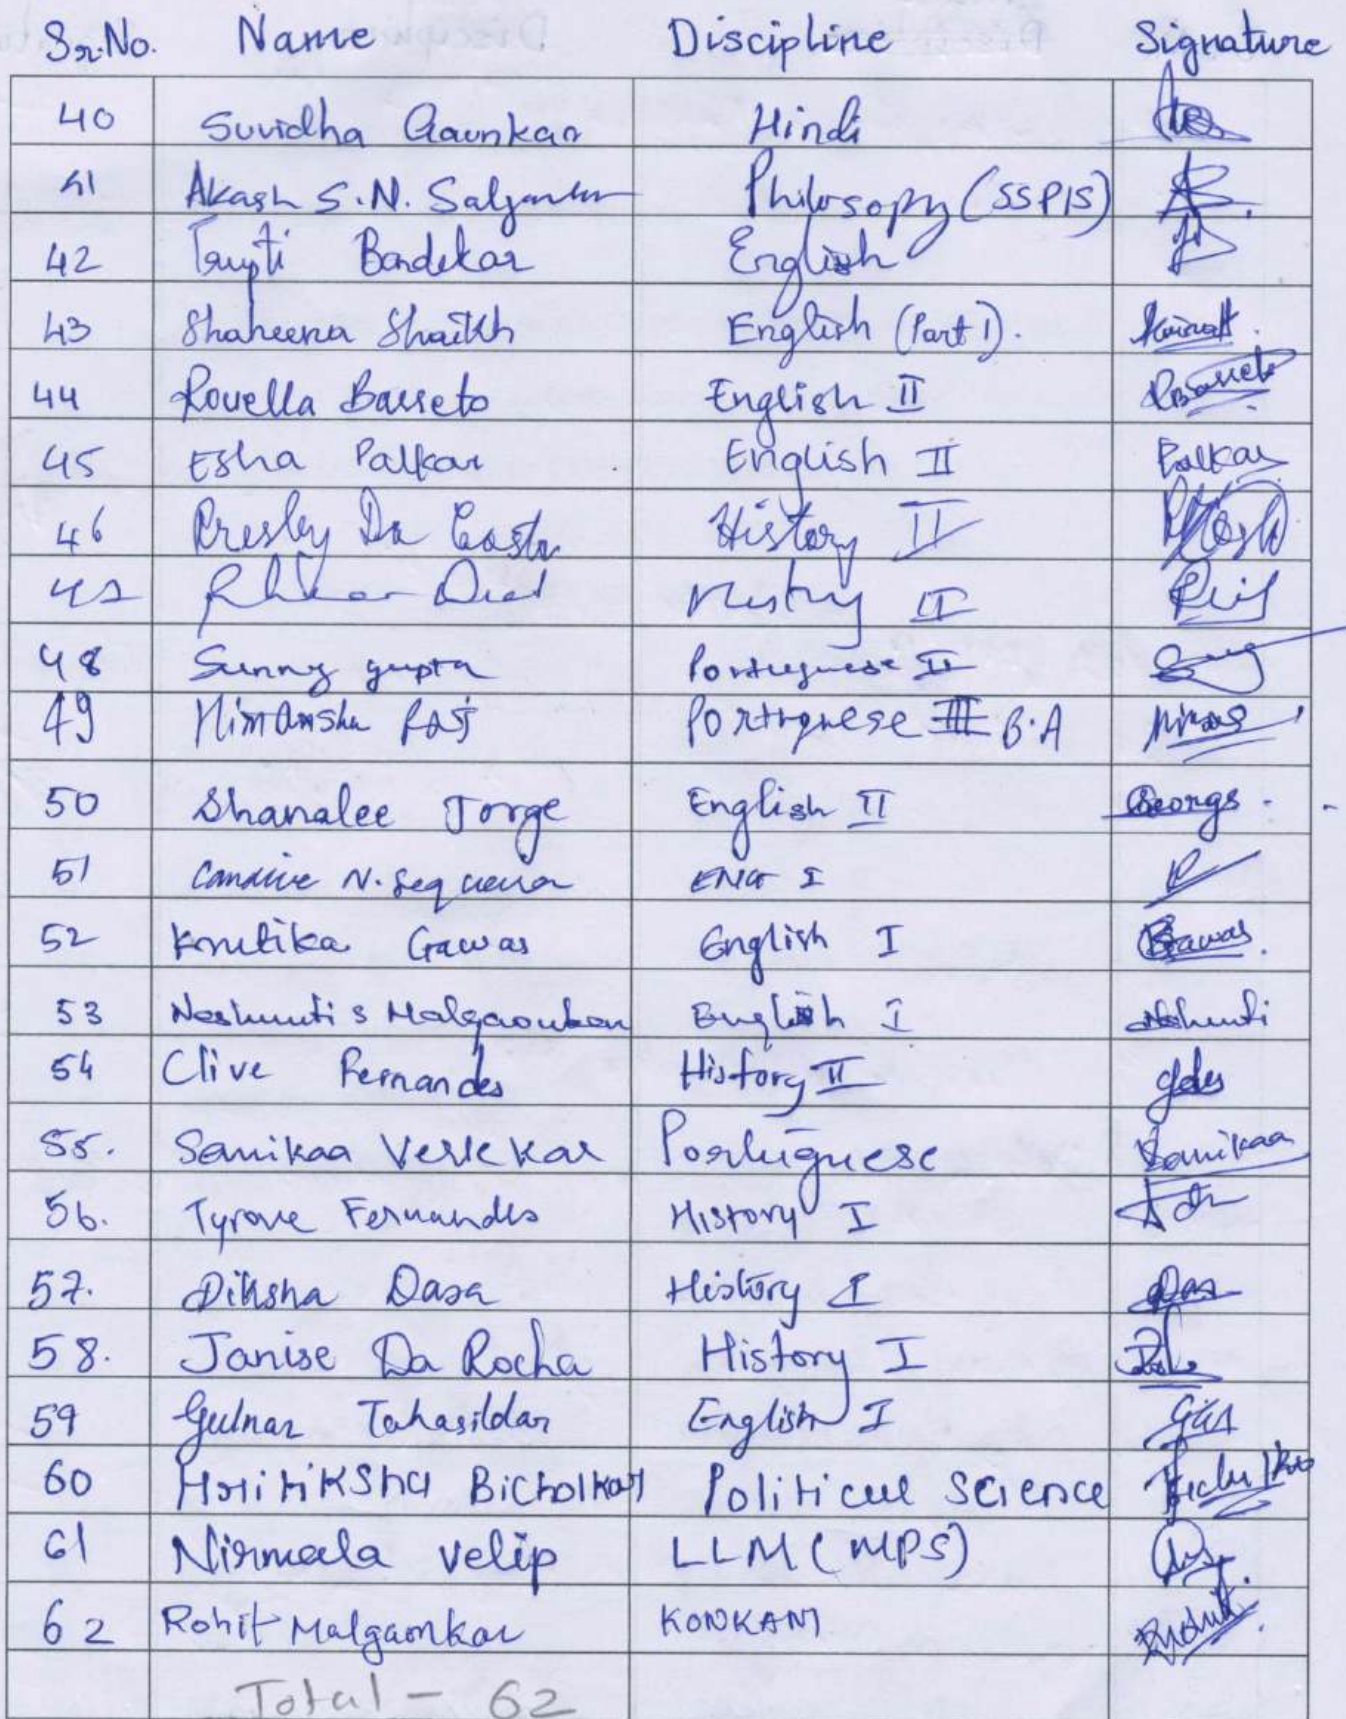 Sr.No. Name Discipline Signature
40 Suvidha Gaunkar Hindi
41 Akash S.N. Salgaonkar Philosopy (SSPIS)
42 Trupti Bandekar English
43 Shaheena Shaikh English (Part 1).
44 Rovella Barreto English II RBarreto
45 Esha Palkar English II Palkar
46 Presley Da Costa History II
47 History II
48 Sunny gupta Portuguese II
49 Himanshu Raj Portuguese III B.A
50 Shanalee Jorge English II
51 Candice N. Sequeira ENG I
52 Krutika Gawas English I Gawas.
53 Neshunti S Malgaonkar English I Neshunti
54 Clive Fernandes History II
55. Sanikaa Verlekar Portuguese Sanikaa
56. Tyrone Fernandes History I
57. Diksha Dasa History I
58. Janise Da Rocha History I
59 Gulnar Tahasildar English I
60 Hritiksha Bicholkar Political Science
61 Nirmala Velip LLM (MPS)
62 Rohit Malgaonkar KONKANI
Total - 62